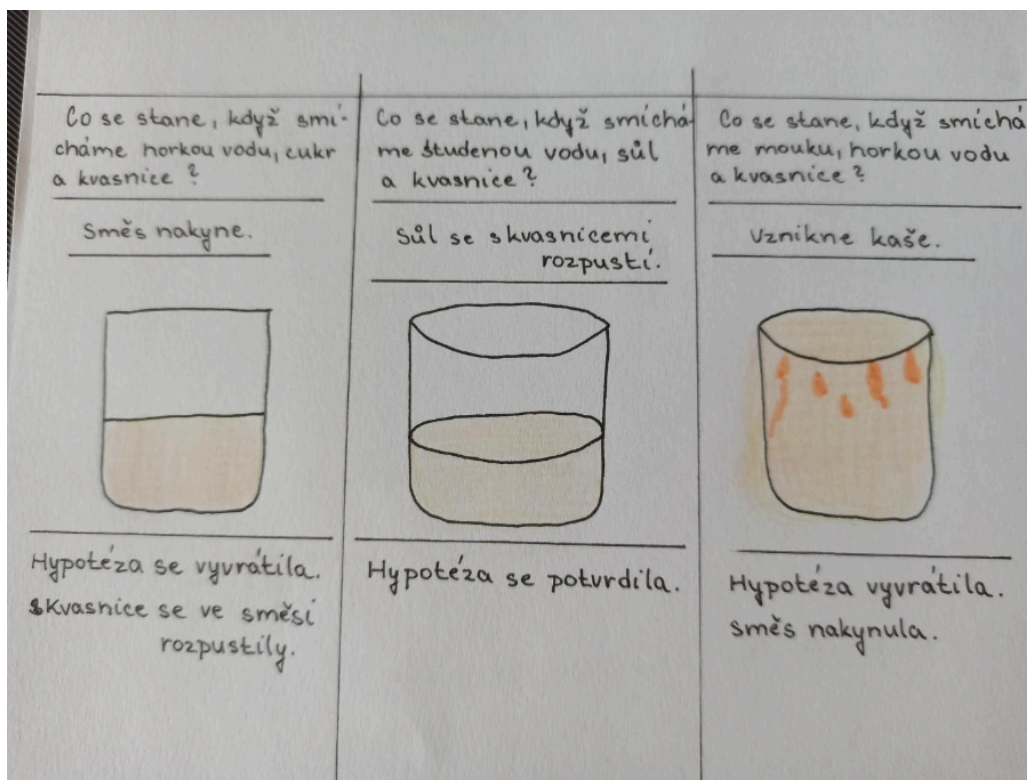 Co se stane, když smí-
cháme horkou vodu, cukr
a kvasnice?
Směs nakyne.
Hypotéza se vyvrátila.
Kvasnice se ve směsi
rozpustily.
Co se stane, když smíchá-
me studenou vodu, sůl
a kvasnice?
Sůl se s kvasnicemi
rozpustí.
Hypotéza se potvrdila.
Co se stane, když smíchá
me mouku, horkou vodu
a kvasnice?
Vznikne kaše.
Hypotéza vyvrátila.
směs nakynula.